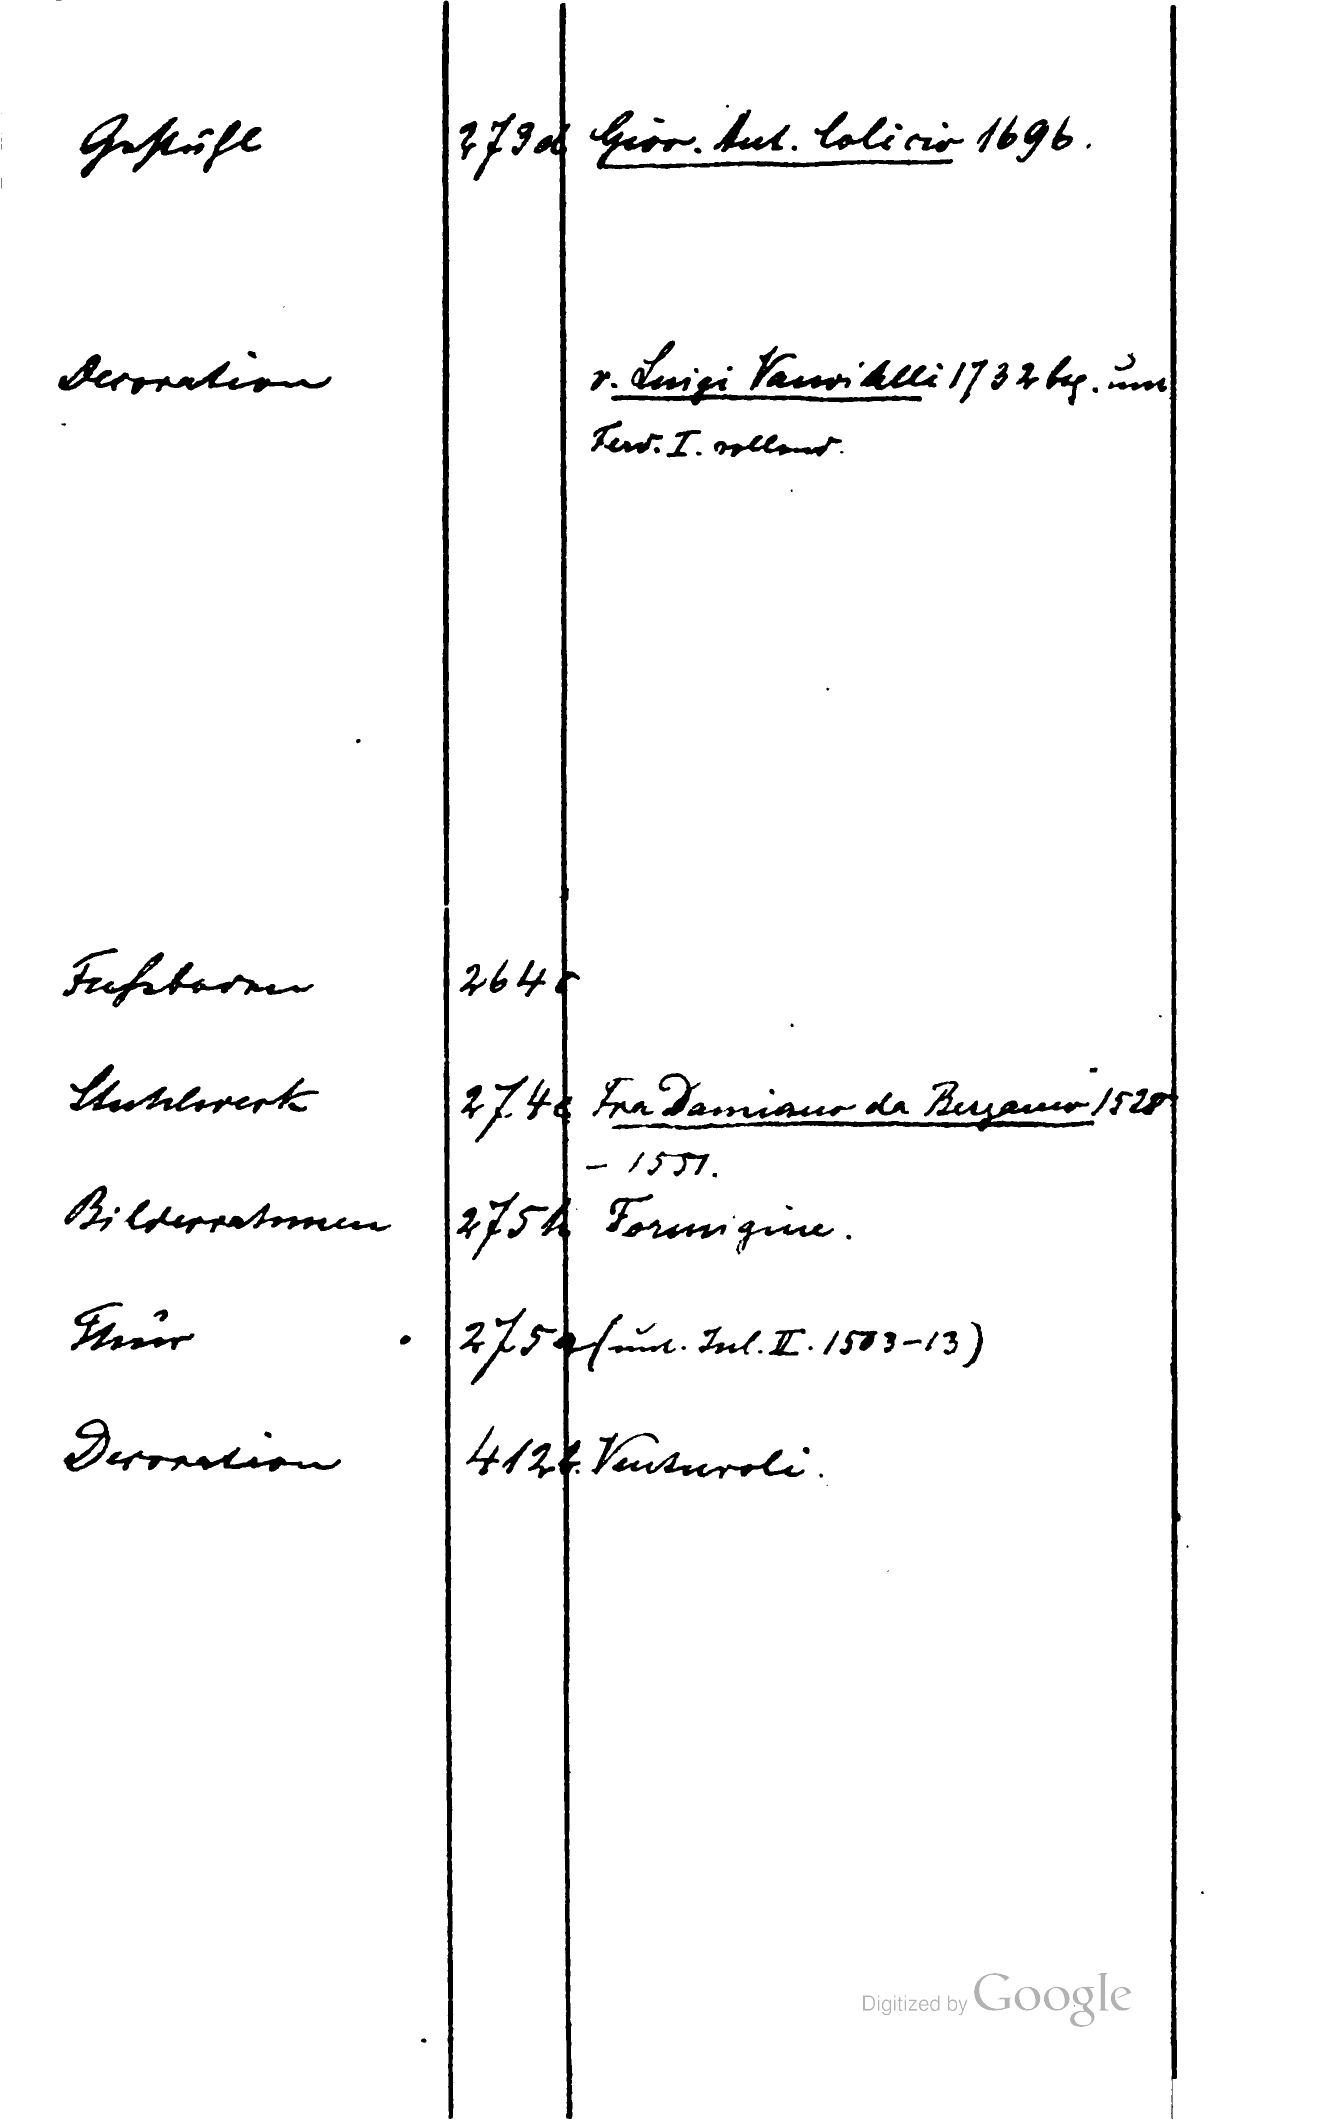 Gestühl 279d Giov. Ant. Colicio 1696.
Decoration v. Luigi Vanvitelli 1732 beg. unt
Ferd. I. vollend.
Fußboden 264c
Stuhlwerk 274c Fra Damiano da Bergamo 1528
– 1551.
Bilderrahmen 275h Formigine.
Thür 275a (unt. Jul. II. 1503–13)
Decoration 412b. Venturoli.
Digitized by Google